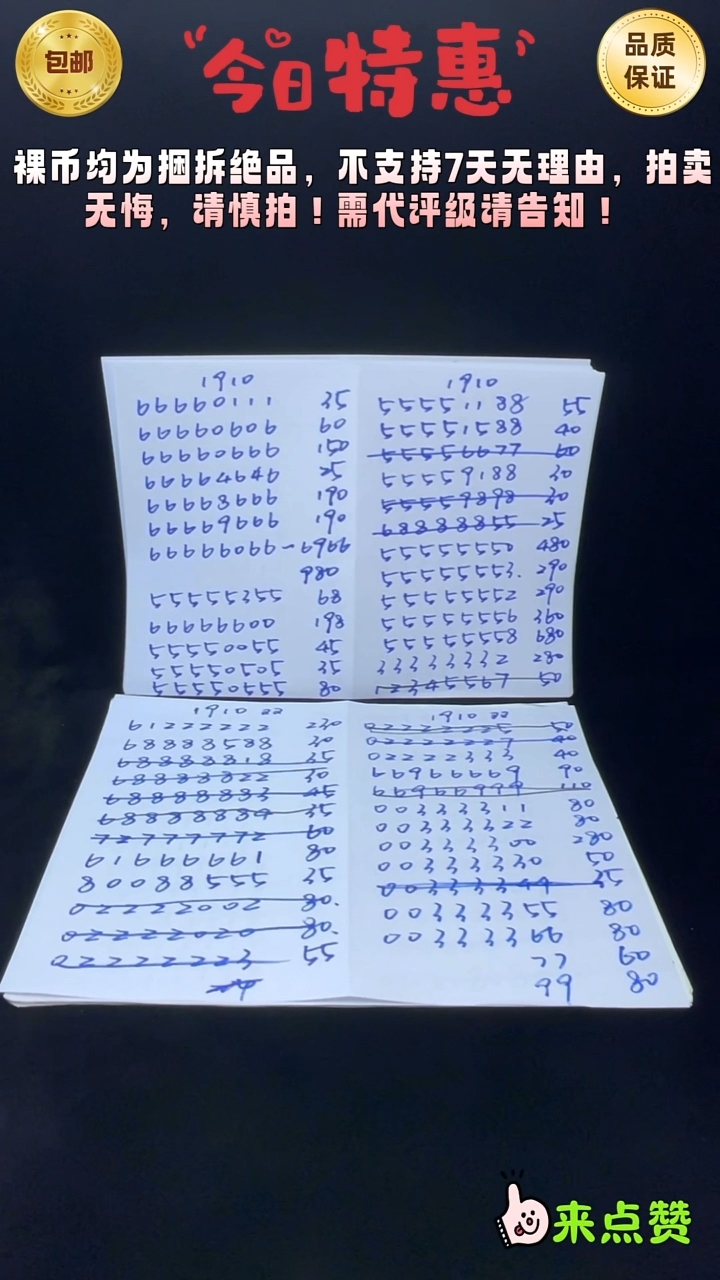 包邮
"今日特惠"
品质
保证
裸币均为捆拆绝品，不支持7天无理由，拍卖
无悔，请慎拍！需代评级请告知！
1910
66660111 35
66660606 60
66660666 150
66664646 25
66668666 190
66669666 190
66666066-6966
980
55555355 68
66666600 198
55550055 45
55550505 35
55550555 80
1910
55551188 55
55551588 40
55556677 60
55559188 30
55559898 30
68888855 25
55555550 480
55555553. 290
55555552 290
55555556 360
55555558 680
33333332 280
12345567 50
1910 22
61222222 230
68888588 30
68888818 35
68888822 30
68888883 45
68888884 35
72777772 60
61666661 80
80088555 35
02222002 80.
02222020 80.
02222223 55
1910 22
02222225 50
02222227 40
02222333 40
66966669 90
66966999 110
00333311 80
00333322 80
00333300 280
00333330 50
00333344 35
00333355 80
00333366 80
77 60
99 80
来点赞